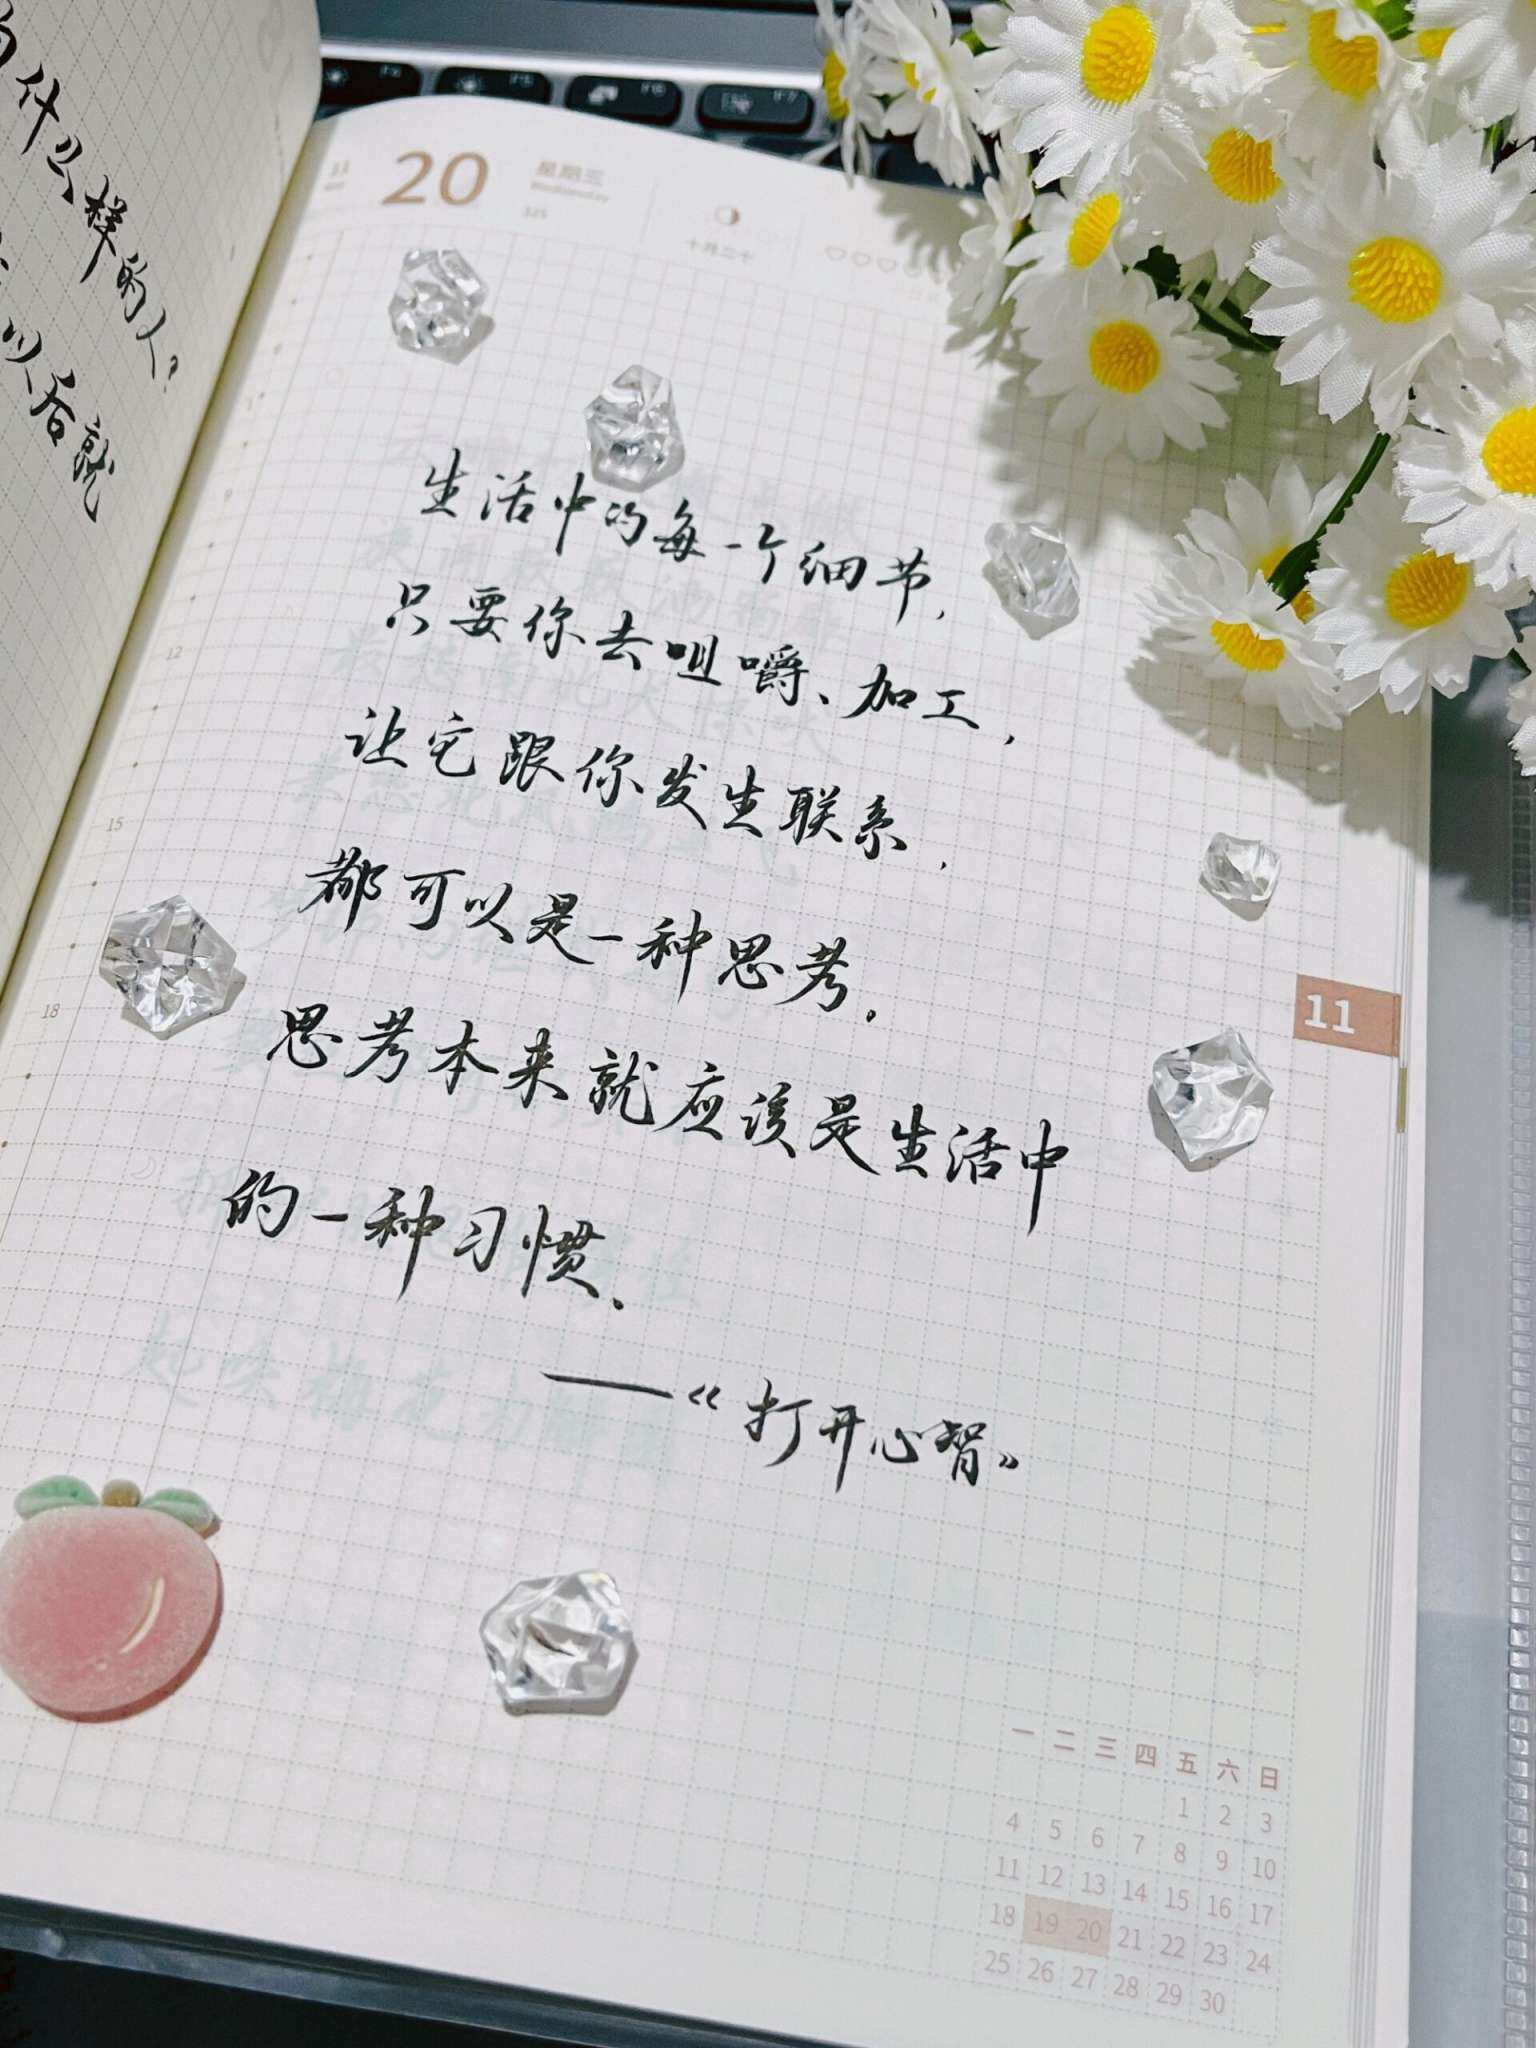 什么样的人?
以后就
F4
F5
F6
F7
11
20
星期三
Wednesday
325
十月二十
生活中的每一个细节,
只要你去咀嚼、加工,
让它跟你发生联系,
都可以是一种思考.
思考本来就应该是生活中
的一种习惯.
——《打开心智》
9
12
15
18
11
一 二 三 四 五 六 日
1 2 3
4 5 6 7 8 9 10
11 12 13 14 15 16 17
18 19 20 21 22 23 24
25 26 27 28 29 30